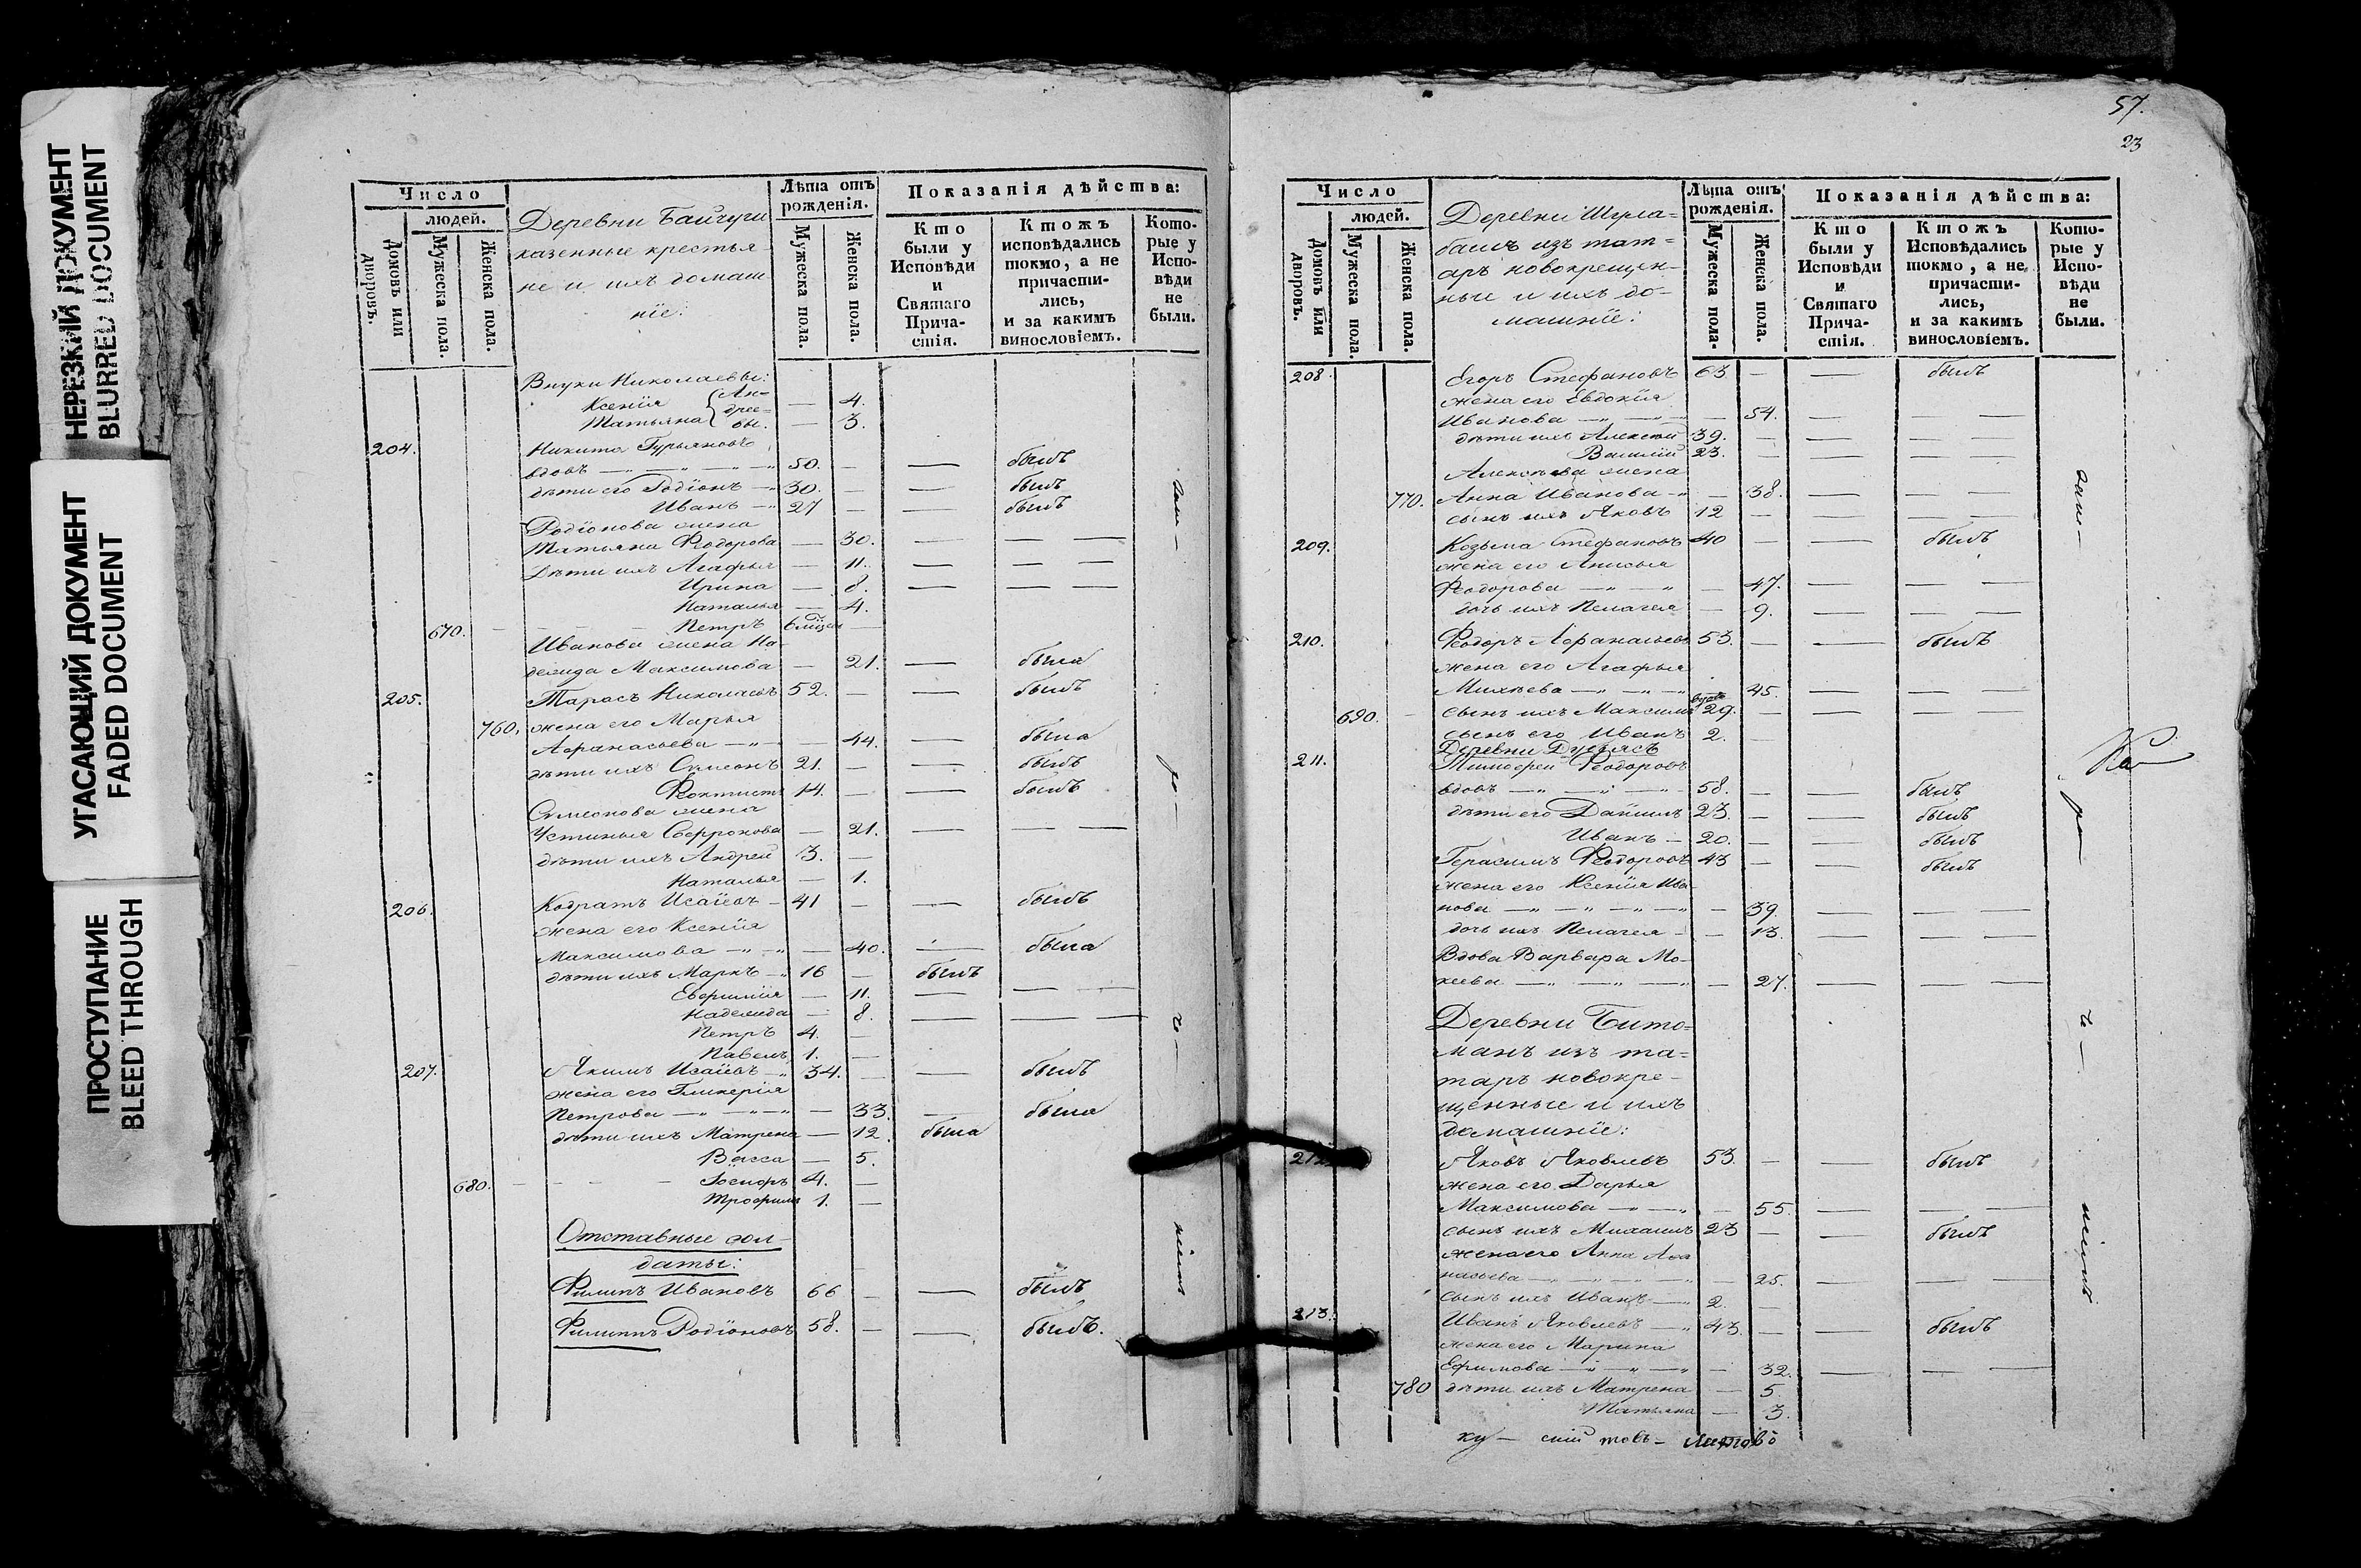 НЕРЕЗКИЙ ДОКУМЕНТ
BLURRED DOCUMENT
УГАСАЮЩИЙ ДОКУМЕНТ
FADED DOCUMENT
ПРОСТУПАНИЕ
BLEED THROUGH
Число
людей.
Домовъ или дворовъ.
Мужеска пола.
Женска пола.
Деревни Байчуги
казенные крестья-
не и ихъ домаш
нiе:
Лѣта отъ рожденiя.
Мужеска пола.
Женска пола.
Показанiя дѣйства:
Кто были у Исповѣди и Святаго Прича-стiя.
Ктожъ исповѣдались токмо, а не причасти-лись, и за какимъ винословiемъ.
Кото-рые у Испо-вѣди не были.
Внуки Николаевы:
Ксенiя {Ан- — 4.
Татьяна {дрее-вы. — 3.
204. Никита Гурьяновъ
вдовъ 50. — — былъ
дѣти его Родiонъ 30. — — былъ
Иванъ 27 — — былъ
Родiонова жена
Татьяна Феодорова — 30. — — —
Дѣти ихъ Агафья — 11. — — —
Ирина — 8. — — —
Наталья — 4.
670. Петръ 6 —
Иванова жена На-
дежда Максимова — 21. — была
205. Тарасъ Николаевъ 52. — — былъ
760. жена его Марья
Афанасьева — 44. — была
дѣти ихъ Симеонъ 21. — — былъ
Феоктистъ 14. — — былъ
Симеонова жена
Устинья — 21. — — —
дѣти ихъ Андрей 3. —
Наталья — 1.
206. Кодратъ Исаiевъ 41 — — былъ
жена его Ксенiя
Максимова — 40. — была
дѣти ихъ Маркъ 16 — былъ
Евфимiя — 11. — — —
Надежда — 8. — — —
Петръ 4. —
Павелъ 1. —
207. Якимъ Исаiевъ 34. — — былъ
жена его Гликерiя
Петрова — 33. — была
дѣти ихъ Матрена — 12. была
Васса — 5.
680. Iосифъ 4. —
Трофимъ 1. —
Отставные сол-
даты:
Филипъ Ивановъ 66 — — былъ
Филиппъ Родiоновъ 58. — — былъ.
57.
23
Число
людей.
Домовъ или дворовъ.
Мужеска пола.
Женска пола.
Деревни Шула-
баши изъ тат-
аръ новокрещен-
ные и ихъ до-
машнiе:
Лѣта отъ рожденiя.
Мужеска пола.
Женска пола.
Показанiя дѣйства:
Кто были у Исповѣди и Святаго Прича-стiя.
Ктожъ Исповѣдались токмо, а не причасти-лись, и за какимъ винословiемъ.
Кото-рые у Испо-вѣди не были.
208. Егоръ Стефановъ 63 — — былъ
жена его Евдокiя
Иванова — 54. — — —
дѣти ихъ Алексѣй 39. — — — —
Василiй 23. — — — —
Алексѣева жена
770. Анна Иванова — 38. — — —
сынъ ихъ Яковъ 12 — — — —
209. Козьма Стефановъ 40 — — былъ
жена его Анисья
Феодорова — 47. — — —
дочь ихъ Пелагея — 9. — — —
210. Феодоръ Афанасьевъ 53. — — былъ
жена его Агафья
Михѣева — 45. — — —
690. сынъ ихъ Максимъ 29. — — — —
сынъ его Иванъ 2. —
Деревни
211. Тимофей Феодоровъ
вдовъ 58. — — былъ
дѣти его Данiилъ 23. — — былъ
Иванъ 20. — — былъ
Герасимъ Феодоровъ 43 — — былъ
жена его Ксенiя Ива-
нова — 39. — — —
дочь ихъ Пелагея — 13. — — —
Вдова Варвара Мо-
кеева — 27. — — —
Деревни Бито-
манъ изъ та-
таръ новокре-
щенные и ихъ
домашнiе:
212. Яковъ Яковлевъ 53. — — былъ
жена его Дарья
Максимова — 55. — — —
сынъ ихъ Михаилъ 23 — — былъ
жена его Анна Афа
насьева — 25. — — —
сынъ ихъ Иванъ 2. —
213. Иванъ Яковлевъ 43. — — былъ
жена его Марина
Ефимова — 32. — — —
780 дѣти ихъ Матрена — 5.
Татьяна — 3.